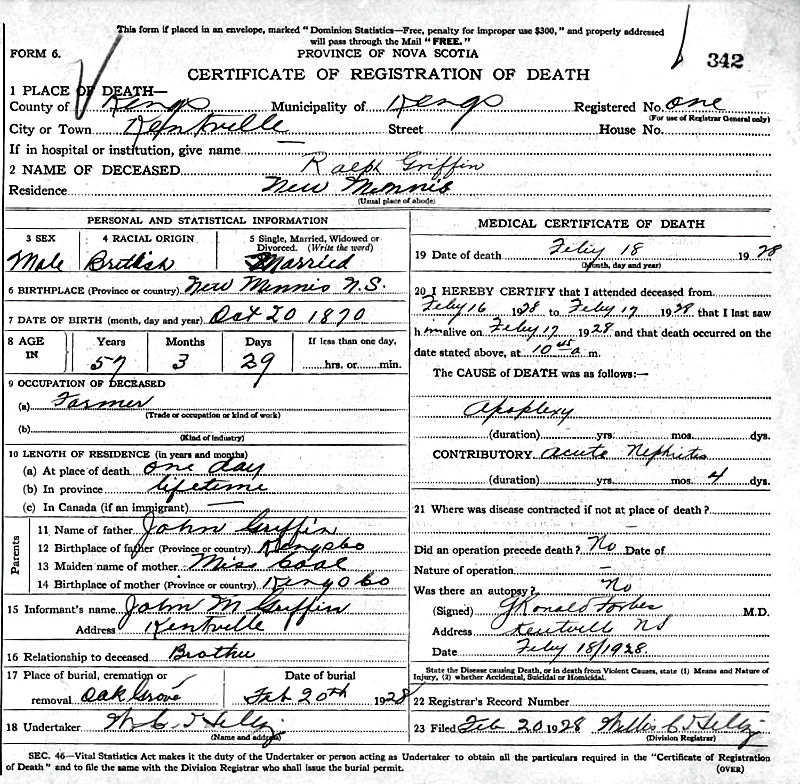 This form if placed in an envelope, marked "Dominion Statistics—Free, penalty for improper use $300," and properly addressed
will pass through the Mail "FREE."
FORM 6.
PROVINCE OF NOVA SCOTIA
342
CERTIFICATE OF REGISTRATION OF DEATH
1 PLACE OF DEATH—
County of Kings Municipality of Kings Registered No. one
(For use of Registrar General only)
City or Town Kentville Street House No.
If in hospital or institution, give name —
2 NAME OF DECEASED Ralph Griffin
Residence New Minnis
(Usual place of abode)
PERSONAL AND STATISTICAL INFORMATION
3 SEX 4 RACIAL ORIGIN 5 Single, Married, Widowed or
Divorced. (Write the word)
Male British Married
6 BIRTHPLACE (Province or country) New Minnis N.S.
7 DATE OF BIRTH (month, day and year) Oct 20 1870
8 AGE IN Years Months Days If less than one day,
57 3 29 hrs. or min.
9 OCCUPATION OF DECEASED
(a) Farmer
(Trade or occupation or kind of work)
(b)
(Kind of industry)
10 LENGTH OF RESIDENCE (in years and months)
(a) At place of death one day
(b) In province lifetime
(c) In Canada (if an immigrant) —
Parents
11 Name of father John Griffin
12 Birthplace of father (Province or country) Kings Co
13 Maiden name of mother Miss
14 Birthplace of mother (Province or country) Kings Co
15 Informant's name John M Griffin
Address Kentville
16 Relationship to deceased Brother
17 Place of burial, cremation or
removal Oak Grove
Date of burial
Feb 20th 1928
18 Undertaker
(Name and address)
MEDICAL CERTIFICATE OF DEATH
19 Date of death Feby 18 1928
(Month, day and year)
20 I HEREBY CERTIFY that I attended deceased from
Feby 16 1928 to Feby 17 1928 that I last saw
h im alive on Feby 17 1928 and that death occurred on the
date stated above, at 10 a m.
The CAUSE OF DEATH was as follows:—
Apoplexy
(duration) yrs. mos. dys.
CONTRIBUTORY acute Nephritis
(duration) yrs. mos. 4 dys.
21 Where was disease contracted if not at place of death?
Did an operation precede death? No Date of
Nature of operation —
Was there an autopsy? No
(Signed) G Ronald Forbes M.D.
Address Kentville NS
Date Feby 18/1928.
State the Disease causing Death, or in death from Violent Causes, state (1) Means and Nature of
Injury, (2) whether Accidental, Suicidal or Homicidal.
22 Registrar's Record Number
23 Filed Feb 20 1928 Willis C
(Division Registrar)
SEC. 46—Vital Statistics Act makes it the duty of the Undertaker or person acting as Undertaker to obtain all the particulars required in the "Certificate of Registration
of Death" and to file the same with the Division Registrar who shall issue the burial permit.
(OVER)